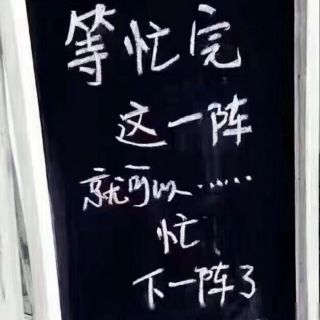 等忙完
这一阵
就可以……
忙
下一阵了